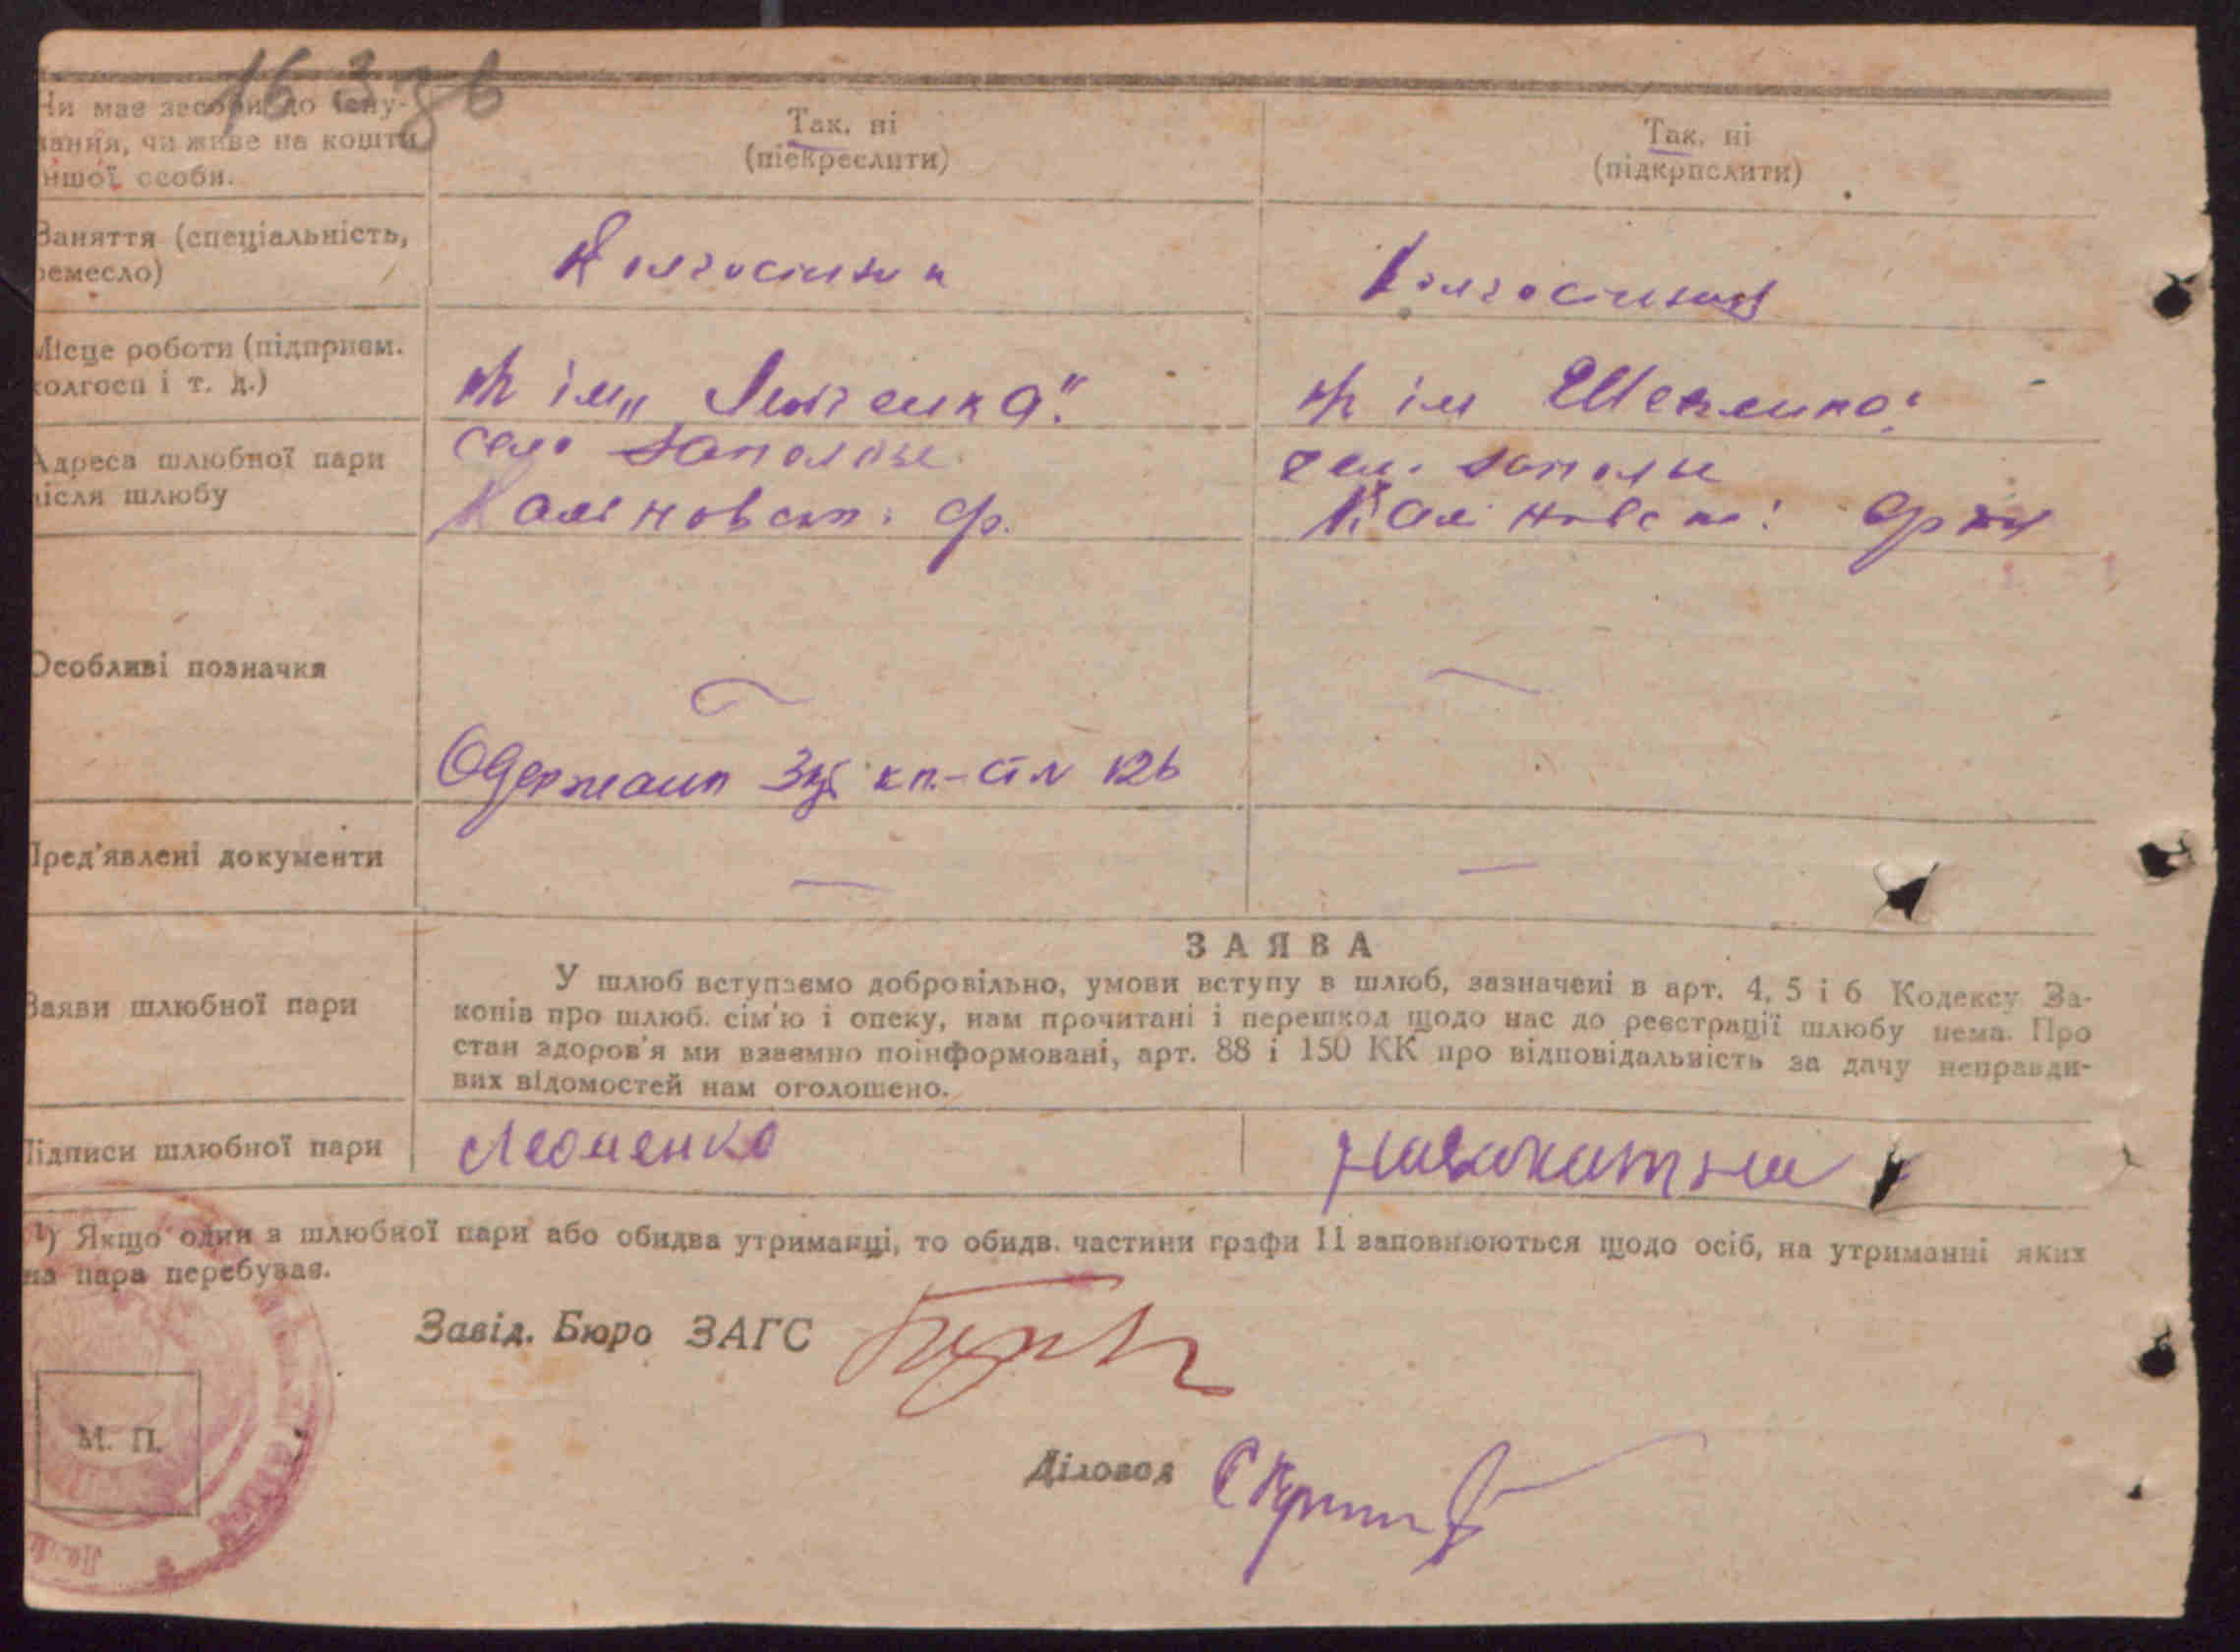 Чи має засоби до існу-
вання, чи живе на кошти
іншої особи.
Так, ні
(піекреслити)
Так, ні
(підкрпслити)
Заняття (спеціальність,
ремесло)
Колгоспник
Місце роботи (підприєм.
колгосп і т. д.)
ім„
ім
Адреса шлюбної пари
після шлюбу
село Заполье
Каліновск. р.
Заполье
Каліновск:
Особливі позначкя
Одержано
Пред'явлені документи
ЗАЯВА
Заяви шлюбної пари
У шлюб вступаємо добровільно, умови вступу в шлюб, зазначені в арт. 4, 5 і 6 Кодексу За-
конів про шлюб. сім'ю і опеку, нам прочитані і перешкод щодо нас до реєстрації шлюбу нема. Про
стан здоров'я ми взаємно поінформовані, арт. 88 і 150 КК про відповідальність за дачу неправди-
вих відомостей нам оголошено.
Підписи шлюбної пари
Леоненко
¹) Якщо один з шлюбної пари або обидва утриманці, то обидв. частини графи 11 заповнюються щодо осіб, на утриманні яких
на пара перебуває.
Завід. Бюро ЗАГС
М. П.
Діловод